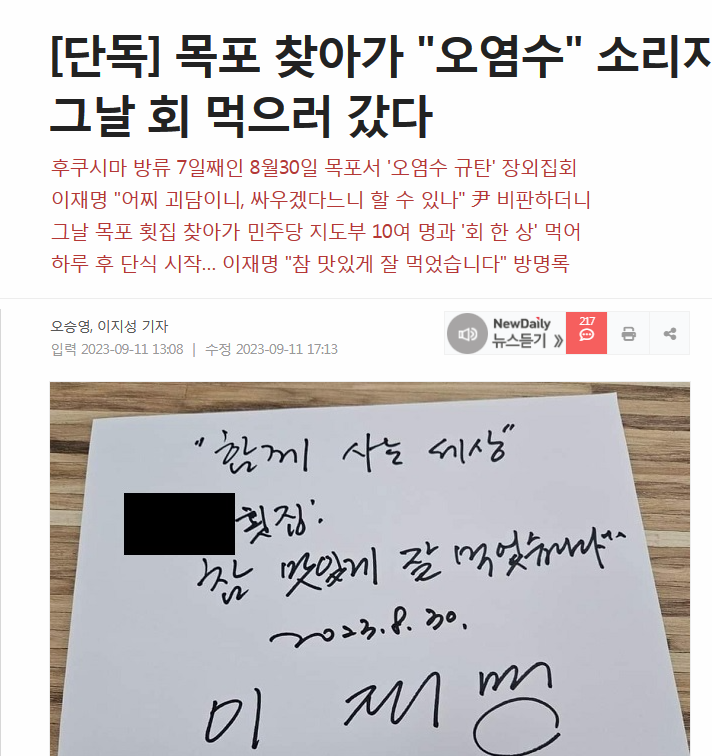 [단독] 목포 찾아가 "오염수" 소리
그날 회 먹으러 갔다
후쿠시마 방류 7일째인 8월30일 목포서 '오염수 규탄' 장외집회
이재명 "어찌 괴담이니, 싸우겠다느니 할 수 있나" 尹 비판하더니
그날 목포 횟집 찾아가 민주당 지도부 10여 명과 '회 한 상' 먹어
하루 후 단식 시작... 이재명 "참 맛있게 잘 먹었습니다" 방명록
오승영, 이지성 기자
입력 2023-09-11 13:08 | 수정 2023-09-11 17:13
NewDaily
뉴스듣기 》
217
"함께 사는 세상"
횟집'.
참 맛있게 잘 먹었습니다^^
2023.8.30.
이재명